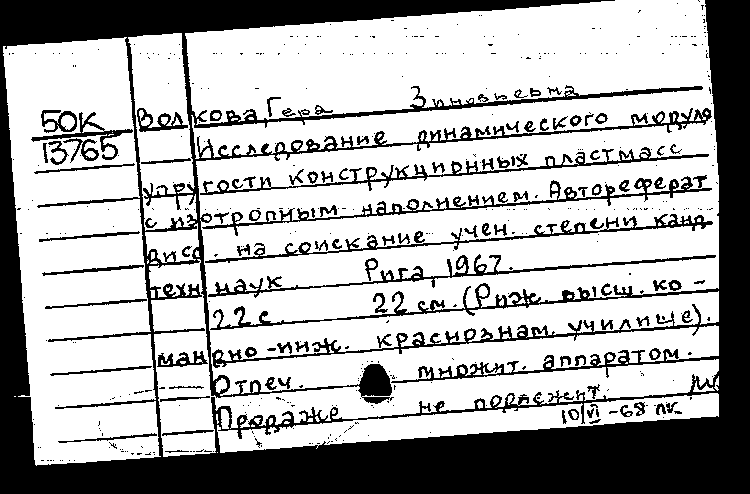 50К
13765
Волкова, Гера Зиновьевна
Исследование динамического модуля
упругости конструкционных пластмасс
с изотропным наполнением. Автореферат
дисс. на соискание учен. степени канд.
техн. наук. Рига, 1967.
22 с. 22 см. (Риж. высш. ко-
мандно-инж. краснознам. училище).
Отпеч. множит. аппаратом.
Продаже не подлежит.
10/VI-68 пк